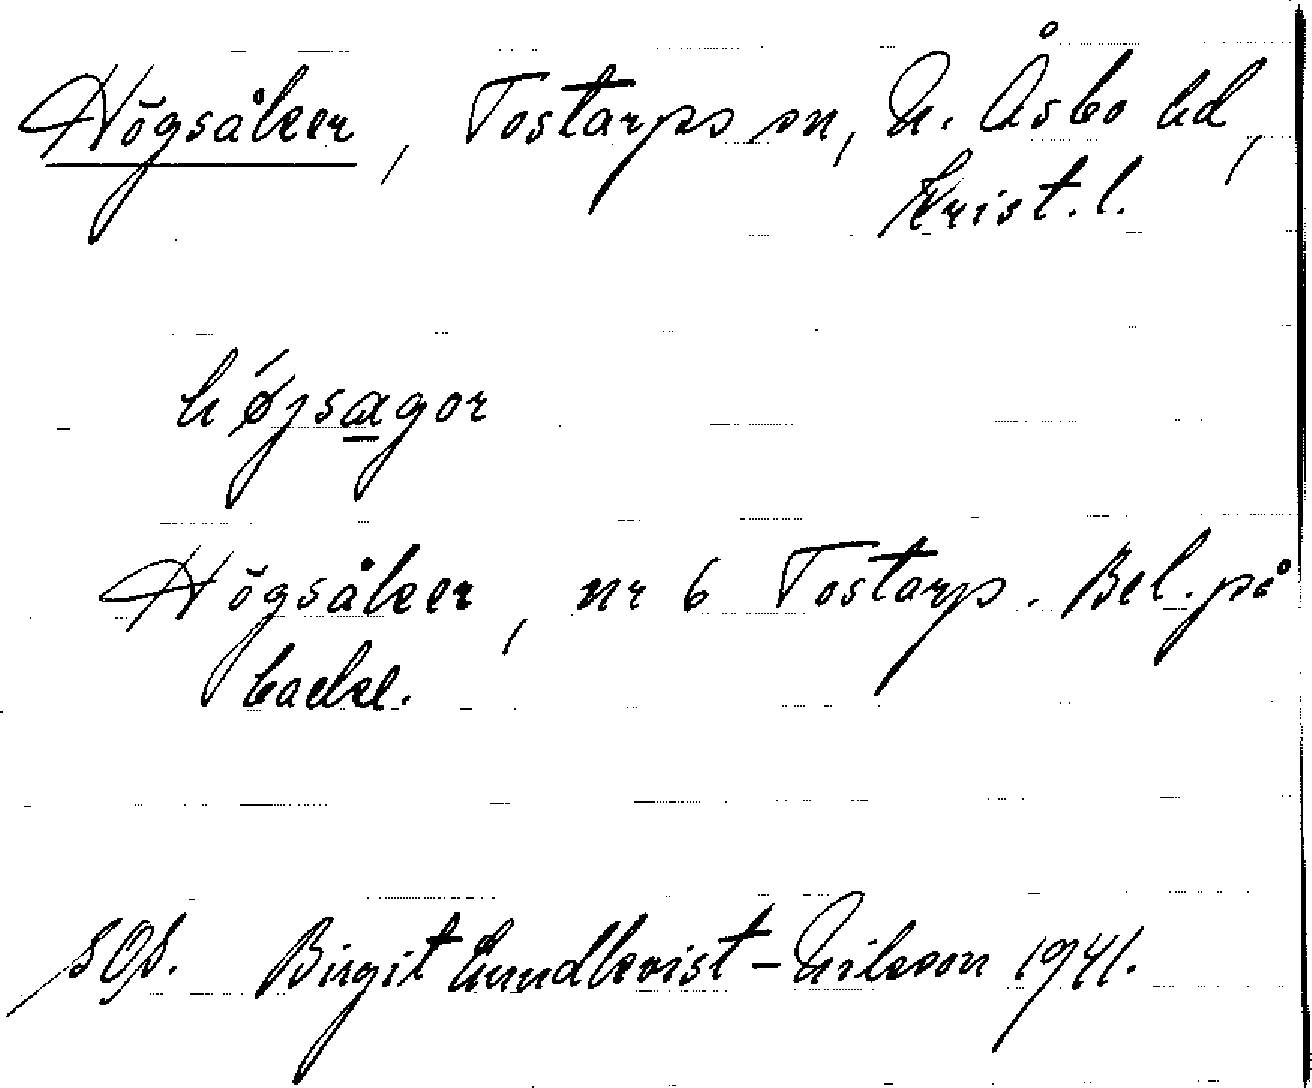 Högsåker, Tostarps sn, N. Åsbo hd,
Krist. l.
hǿjsagor
Högsåker, nr 6 Tostarp. Bel. på
backe.
Birgit Lundkvist-Nilsson 1941.